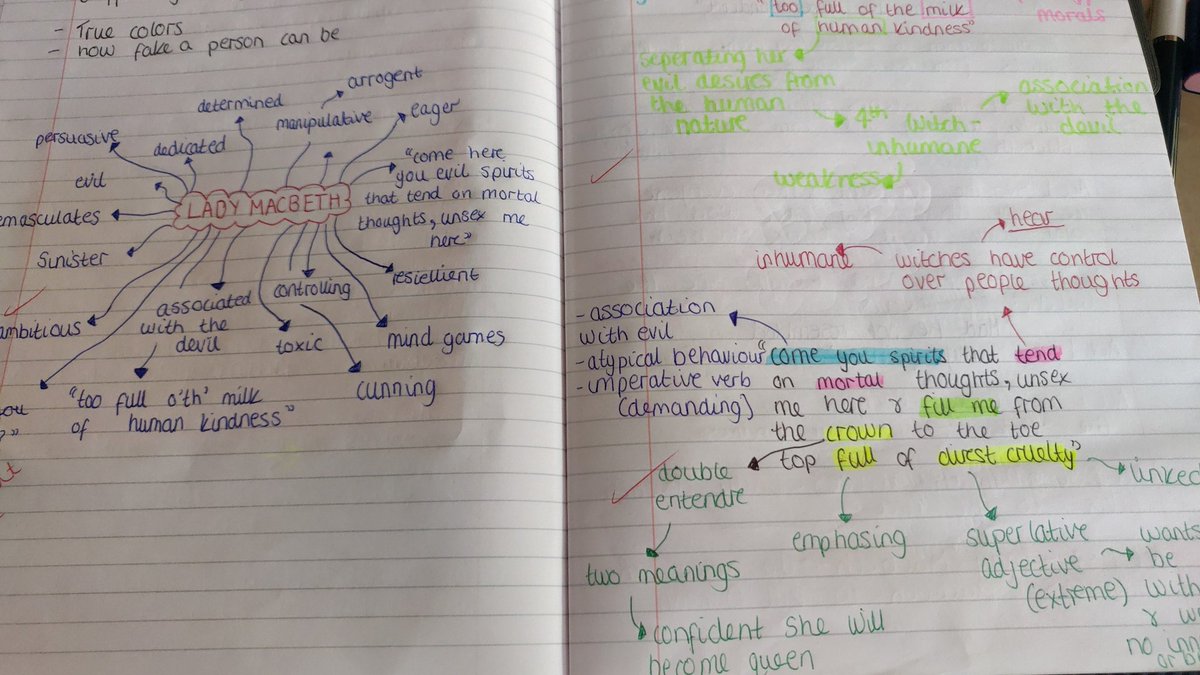 - True colors
- how fake a person can be
arrogent
determined
manipulative
eager
persuasive
dedicated
evil
emasculates
LADY MACBETH
"come here
you evil spirits
that tend on mortal
thoughts, unsex me
here"
Sinister
resiellient
associated
with the
devil
controlling
ambitious
toxic
mind games
cunning
"too full o'th' milk
of human kindness"
"too full of the milk
of human kindness"
morals
seperating her
evil desires from
the human
nature
4th witch -
inhumane
association
with the
devil
weakness
hear
inhumane
witches have control
over people thoughts
- association
with evil
- atypical behaviour
- imperative verb
(demanding)
"come you spirits that tend
on mortal thoughts, unsex
me here & fill me from
the crown to the toe
top full of direst cruelty"
double
entendre
linked
emphasing
superlative
adjective
(extreme)
wants
be
with
&
no
two meanings
confident she will
become queen